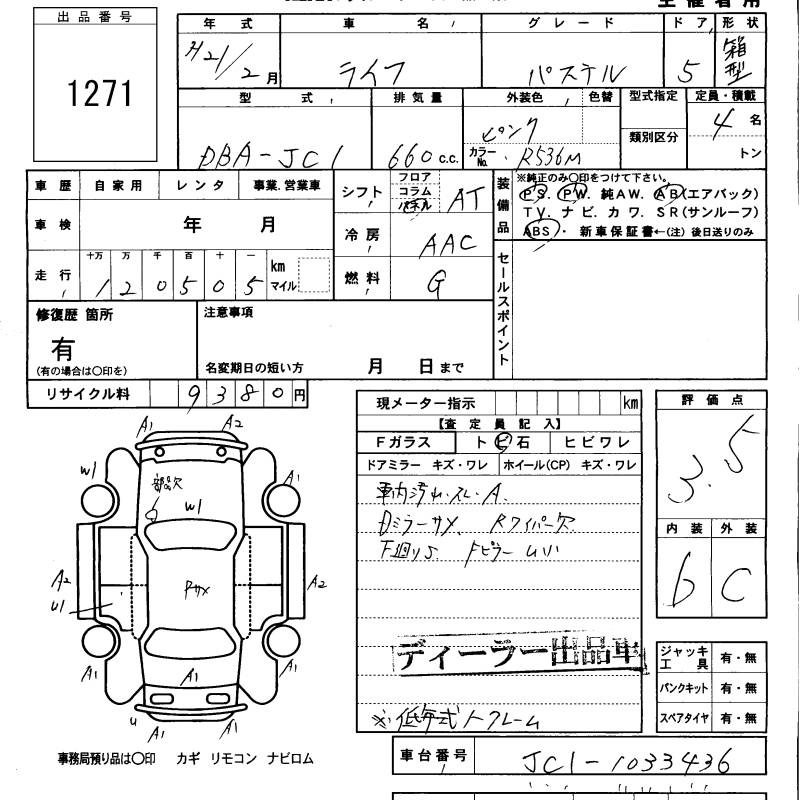 出品番号
1271
年式 車名 グレード ドア 形状
H21/2月 ライフ パステル 5 箱型
型式 排気量 外装色 色替 型式指定 定員・積載
DBA-JC1 660c.c. ピンク カラーNo. R536M 類別区分 4名 トン
車歴 自家用 レンタ 事業.営業車
車検 年 月
走行 十万 万 千 百 十 一 km マイル
1 2 0 5 0 5
シフト フロア コラム パネル AT
冷房 AAC
燃料 G
装備品
※純正のみ○印をつけて下さい。
PS. PW. 純AW. AB(エアバック)
TV. ナビ. カワ. SR(サンルーフ)
ABS・ 新車保証書←(注) 後日送りのみ
セールスポイント
修復歴 箇所
有
(有の場合は○印を)
注意事項
名変期日の短い方 月 日まで
リサイクル料 9380円
現メーター指示 km
【査定員記入】
Fガラス トビ石 ヒビワレ
ドアミラー キズ・ワレ ホイール(CP) キズ・ワレ
車内汚れ.スレ.A.
Dミラーサメ. Rワイパー欠
ディーラー出品車
評価点
3.5
内装 外装
b C
ジャッキ工具 有・無
パンクキット 有・無
スペアタイヤ 有・無
A1 A2
W1 部品欠 W1 A1
A2 U1 Pサメ A2
A1 A1 A1
U A1 A1
事務局預り品は○印 カギ リモコン ナビロム
車台番号 JC1-1033436